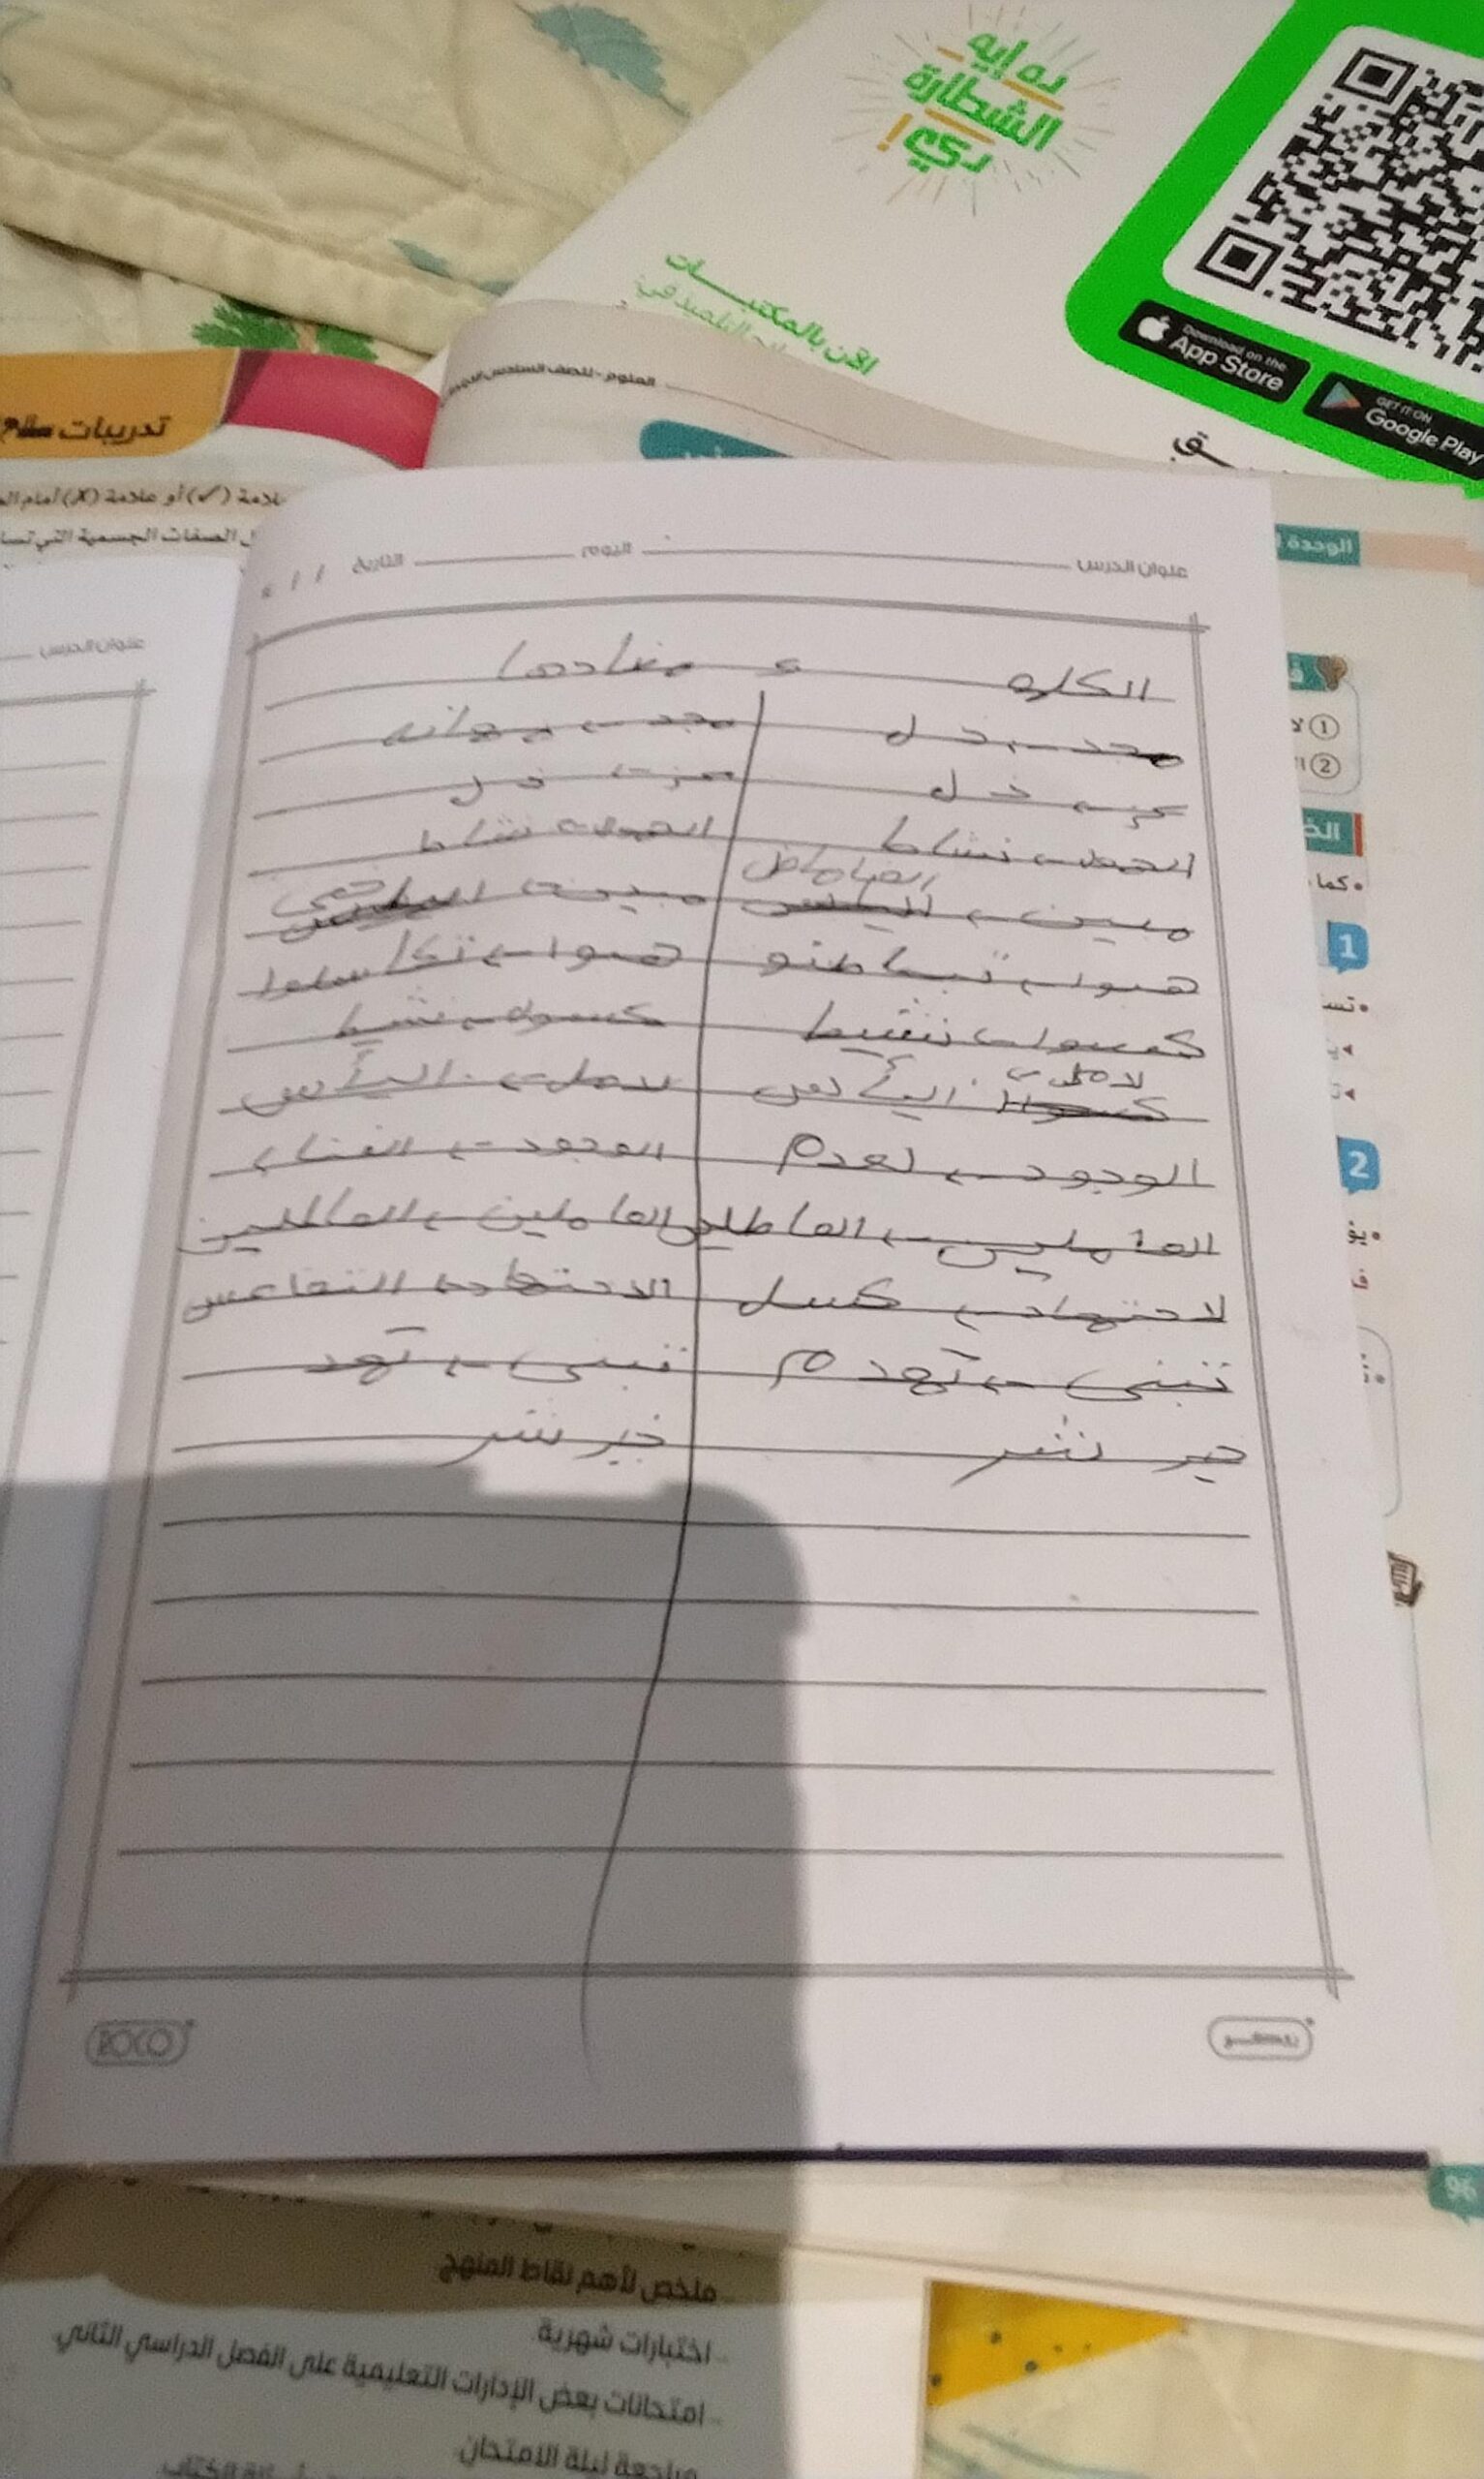 ده إيه
الشطارة
دي!
الآن بالمكتبات
Download on the
App Store
GET IT ON
Google Play
العلوم - للصف السادس
تدريبات سلاح
علامة (✓) أو علامة (✗) أمام
الصفات الجسمية التي
الوحدة
عنوان الدرس
اليوم
التاريخ / /
عنوان الدرس
الكلمه و مضادها
مجد ← ذل مجد ← مهانه
عز ← ذل عزت ذل
الخمول ← نشاط الخمول ← نشاط
الغامض
مبين ← مبين ← الخفي
هبوا ← تباطئو هبوا ← تكاسلوا
كسول ← نشيط كسول ← نشيط
لامل ← اليأس لامل ← اليأس
الوجود ← لعدم الوجود ← الفناء
العاملين ← العاطلين العاملين ← العاطلين
لاجتهاد ← كسل الاجتهاد التقاعس
تبنى ← تهدم تبنى ← تهد
خير شر خير شر
① لا
②
• كما
1
2
ROCO
روكو
96
ملخص لأهم نقاط المنهج
- اختبارات شهرية
- امتحانات بعض الإدارات التعليمية على الفصل الدراسي الثاني
مراجعة ليلة الامتحان